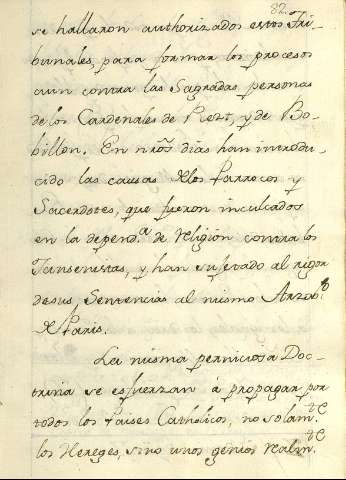 82.
se hallaron authorizados estos Tri-
bunales, para formar los procesos
aun contra las Sagradas personas
de los Cardenales de Retz, y de Bo-
billon. En nros dias han introdu-
cido las causas de los Parrocos y
Sacerdotes, que fueron inculcados
en la depend.a de religion contra los
Jansenistas, y han sujetado al rigor
de sus Sentencias al mismo Arzob.o
de Paris.
La misma perniciosa Doc-
trina se esfuerzan a propagar por
todos los Paises Catholicos, no solam.te
los Hereges, sino unos genios realm.te